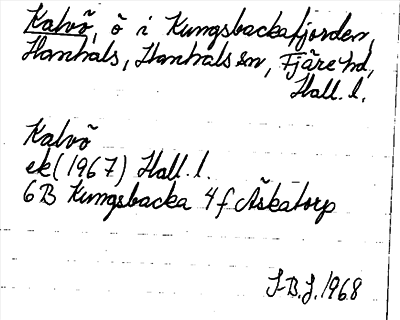 Kalvö, ö i Kungsbackafjorden,
Hanhals, Hanhals sn, Fjäre hd,
Hall. l.
Kalvö
ek (1967) Hall. l.
6B Kungsbacka 4f Åskatorp
S-B.J. 1968